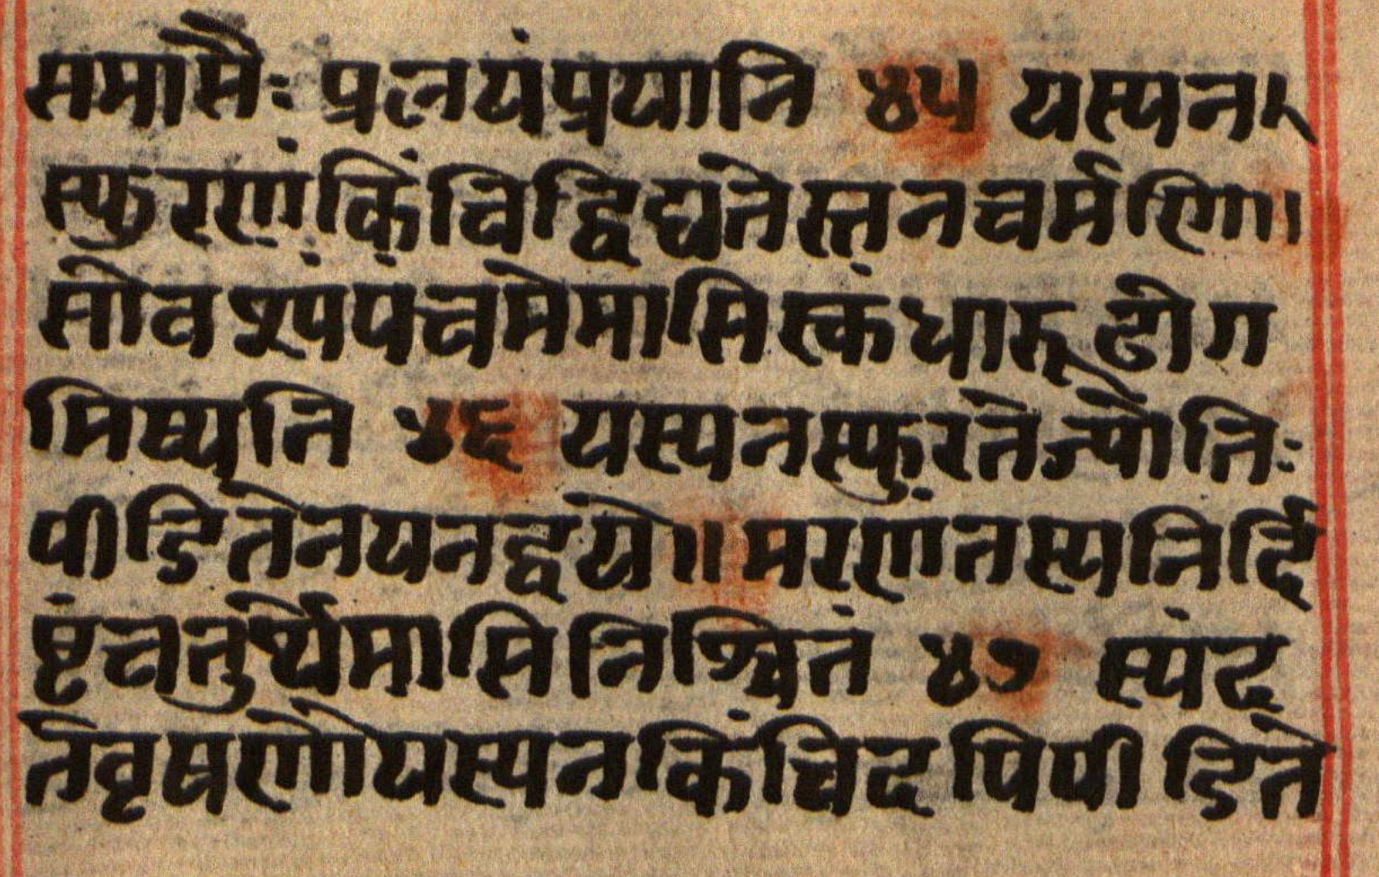 समासैः प्रलयंप्रयाति ४५ यस्यन
स्फुरणंकिंचिद्विद्यतेस्तनचर्मणि।
सोवश्यंपंचमेमासिस्कंधारूढोग
मिष्यति ४६ यस्यनस्फुरतेज्योतिः
पीडितेनयनद्वये॥मरणंतस्यनिर्दि
ष्टंचतुर्थेमासिनिश्चितं ४७ स्पंद
तेवृषणोयस्यनकिंचिदपिपीडिते